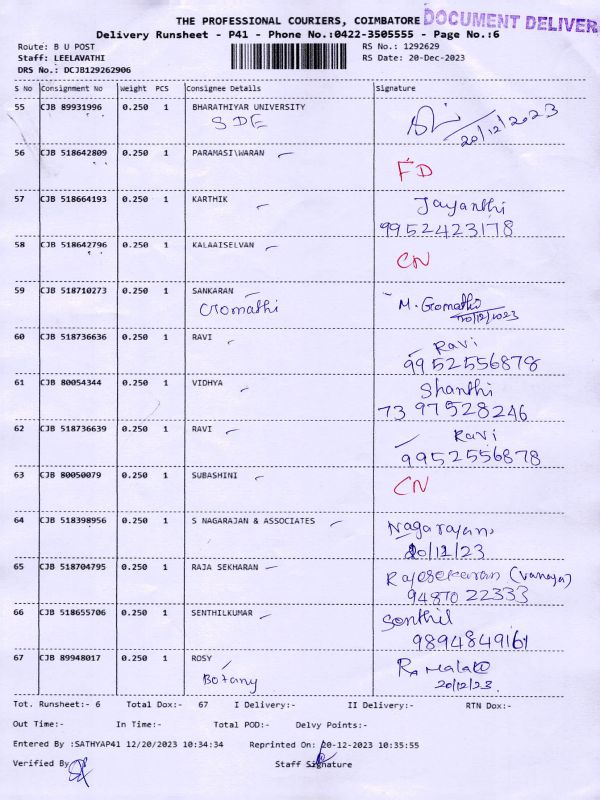 THE PROFESSIONAL COURIERS, COIMBATORE DOCUMENT DELIVER
Delivery Runsheet - P41 - Phone No.:0422-3505555 - Page No.:6
Route: B U POST RS No.: 1292629
Staff: LEELAVATHI RS Date: 20-Dec-2023
DRS No.: DCJB129262906
S No Consignment No Weight PCS Consignee Details Signature
55 CJB 89931996 0.250 1 BHARATHIYAR UNIVERSITY
SDE 20/12/2023
56 CJB 518642809 0.250 1 PARAMASI\WARAN
FD
57 CJB 518664193 0.250 1 KARTHIK Jayanthi
9952423178
58 CJB 518642796 0.250 1 KALAAISELVAN
CN
59 CJB 518710273 0.250 1 SANKARAN
Gomathi M. Gomathi
20/12/2023
60 CJB 518736636 0.250 1 RAVI Ravi
9952556878
61 CJB 80054344 0.250 1 VIDHYA Shanthi
73 97528246
62 CJB 518736639 0.250 1 RAVI Ravi
9952556878
63 CJB 80050079 0.250 1 SUBASHINI
CN
64 CJB 518398956 0.250 1 S NAGARAJAN & ASSOCIATES Nagarajan
20/12/23
65 CJB 518704795 0.250 1 RAJA SEKHARAN Rajesekaran (Vanaja)
94870 22333
66 CJB 518655706 0.250 1 SENTHILKUMAR Senthil
9894849161
67 CJB 89948017 0.250 1 ROSY
Botany 20/12/23.
Tot. Runsheet:- 6 Total Dox:- 67 I Delivery:- II Delivery:- RTN Dox:-
Out Time:- In Time:- Total POD:- Delvy Points:-
Entered By :SATHYAP41 12/20/2023 10:34:34 Reprinted On: 20-12-2023 10:35:55
Verified By Staff Signature